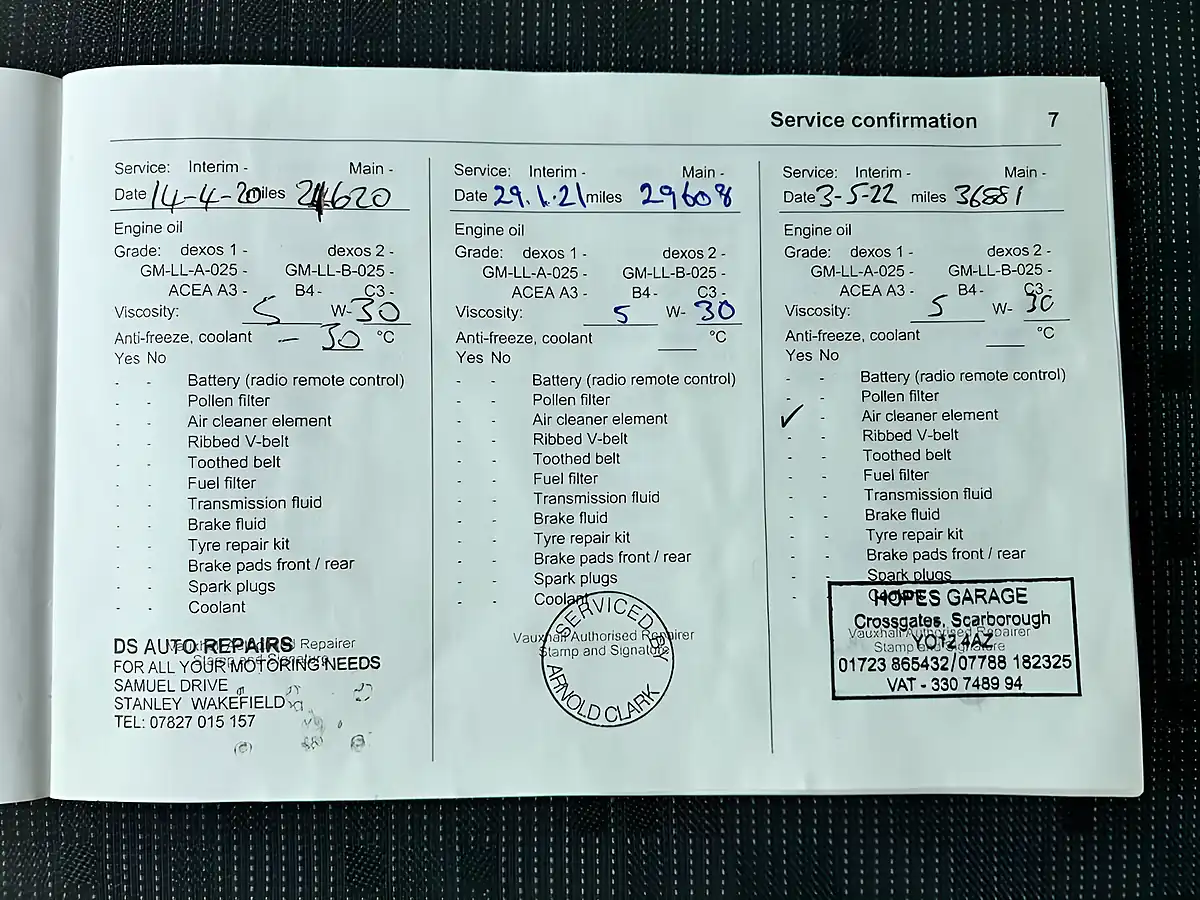 Service confirmation 7
Service: Interim - Main -
Date 14-4-20 miles 24620
Engine oil
Grade: dexos 1 - dexos 2 -
GM-LL-A-025 - GM-LL-B-025 -
ACEA A3 - B4 - C3 -
Viscosity: 5 W- 30
Anti-freeze, coolant - 30 °C
Yes No
- - Battery (radio remote control)
- - Pollen filter
- - Air cleaner element
- - Ribbed V-belt
- - Toothed belt
- - Fuel filter
- - Transmission fluid
- - Brake fluid
- - Tyre repair kit
- - Brake pads front / rear
- - Spark plugs
- - Coolant
Vauxhall Authorised Repairer
Stamp and Signature
DS AUTO REPAIRS
FOR ALL YOUR MOTORING NEEDS
SAMUEL DRIVE
STANLEY WAKEFIELD
TEL: 07827 015 157
Service: Interim - Main -
Date 29.1.21 miles 29608
Engine oil
Grade: dexos 1 - dexos 2 -
GM-LL-A-025 - GM-LL-B-025 -
ACEA A3 - B4 - C3 -
Viscosity: 5 W- 30
Anti-freeze, coolant °C
Yes No
- - Battery (radio remote control)
- - Pollen filter
- - Air cleaner element
- - Ribbed V-belt
- - Toothed belt
- - Fuel filter
- - Transmission fluid
- - Brake fluid
- - Tyre repair kit
- - Brake pads front / rear
- - Spark plugs
- - Coolant
Vauxhall Authorised Repairer
Stamp and Signature
SERVICED BY
ARNOLD CLARK
Service: Interim - Main -
Date 3-5-22 miles 36881
Engine oil
Grade: dexos 1 - dexos 2 -
GM-LL-A-025 - GM-LL-B-025 -
ACEA A3 - B4 - C3 -
Viscosity: 5 W- 30
Anti-freeze, coolant °C
Yes No
- - Battery (radio remote control)
- - Pollen filter
✓ - Air cleaner element
- - Ribbed V-belt
- - Toothed belt
- - Fuel filter
- - Transmission fluid
- - Brake fluid
- - Tyre repair kit
- - Brake pads front / rear
- - Spark plugs
- Coolant
Vauxhall Authorised Repairer
Stamp and Signature
HOPES GARAGE
Crossgates, Scarborough
YO12 4AZ
01723 865432/07788 182325
VAT - 330 7489 94